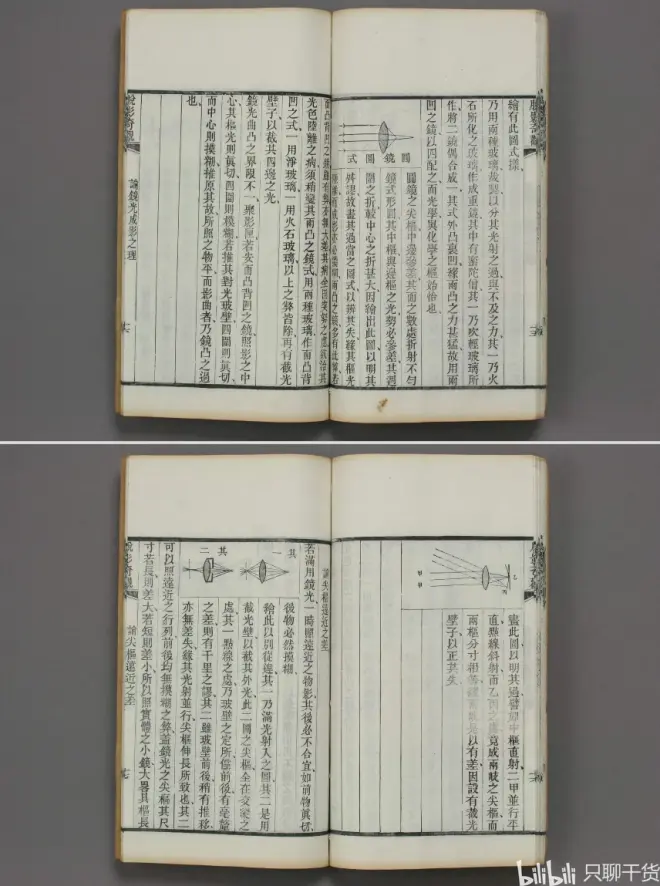 繪有此圖式樣
乃用兩種玻璃故製以分其光射之過與不及之力其一乃火
石所化之玻璃作成重鏡其中有密陀僧其一乃吹輕玻璃所
作將二鏡偶合成一其式外凸裏凹緣兩凸之力甚猛故用兩
凹之鏡以四配之而光學與化學之樞始恰也
圓鏡之尖樞中邊參差其面之數處折射不勻
鏡式形圓其中樞與邊樞之光勢必參差其週
圍之折較中心之折甚大因繪出此圖以明其
舛謬故畫其過當之圖式以辨其失緣其樞光
圓鏡圖式
光色陸離之病須稍變其兩凸之鏡式用兩種玻璃作而凸背
凹之式一用淨玻璃一用火石玻璃以上之弊皆除再有截光
壁子以截其四邊之光
鏡光曲凸之界限不一聚影僻若安而凸背凹之鏡照影之中
心其樞光則真切四圍則模糊若推其對光玻壁四圍則真切
而中心則模糊推原其故所照之物平而影曲者乃鏡凸之過
也
脫影奇觀
論鏡光成影之理
十六
脫影奇觀
乙
丙
甲
甲
畫此圖以明其過譬如中樞直射二甲並行平
直點線斜射而乙丙之處竟成兩歧之尖樞而
兩樞分寸相等緣是以有差因設有截光
壁子以正其失
論尖樞遠近之差
若滿用鏡光一時照遠近之物影其後必不合宜如前物真切
後物必然模糊
其一
其二
繪此以別從違其一乃滿光射入之圖其二是用
截光壁以截其外光此二圖之尖樞全在交淩之
處其一點線之處乃玻壁之定所儻前後有毫釐
之差則有千里之謬其二雖玻壁前後稍有推移
亦無差失緣其光射並行尖樞伸長所致也其二
可以照遠近之行列前後均無模糊之弊蓋鏡光之尖樞其尺
寸若長則差大若短則差小所以照實體之小鏡大畧其樞長
脫影奇觀
論尖樞遠近之差
十七
bilibili 只聊干货